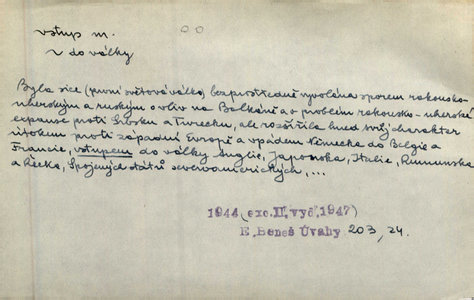 vstup m.
v do války
Byla sice (první světová válka) bezprostředně vyvolána sporem rakousko-
uherským a ruským o vliv na Balkáně a o problém rakousko-uherské
expanse proti Srbsku a Turecku, ale rozšířila hned svůj charakter
útokem proti západní Evropě a vpádem Německa do Belgie a
Francie, vstupem do války Anglie, Japonska, Italie, Rumunska
a Řecka, Spojených států severoamerických, ...
1944 (exc. II. vyd. 1947)
E. Beneš Úvahy 203, 24.